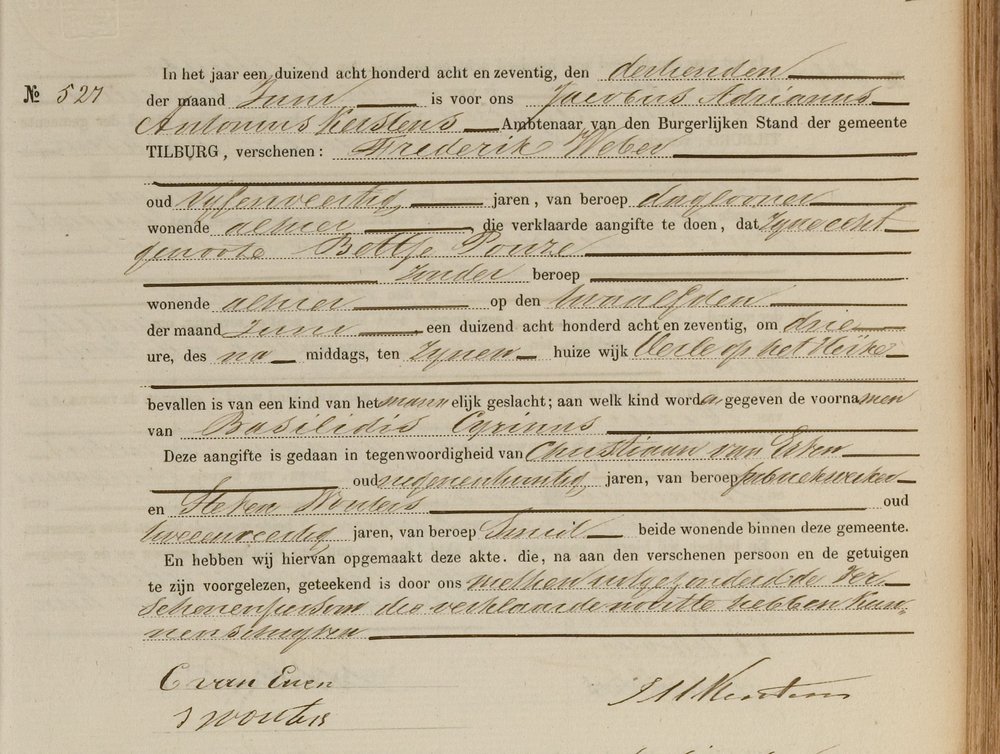 In het jaar een duizend acht honderd acht en zeventig, den dertienden
№ 527 der maand Juni is voor ons Jacobus Adrianus
Antonius Kerstens Ambtenaar van den Burgerlijken Stand der gemeente
TILBURG, verschenen: Frederik Weber
oud vijfenveertig jaren, van beroep daglooner
wonende alhier, die verklaarde aangifte te doen, dat zijne echt
genoote Beltje
zonder beroep
wonende alhier op den twaalfden
der maand Juni een duizend acht honderd acht en zeventig, om drie
ure, des na middags, ten zijnen huize wijk op het Heike
bevallen is van een kind van het mannelijk geslacht; aan welk kind worden gegeven de voornamen
van Basilidis Cyrinus
Deze aangifte is gedaan in tegenwoordigheid van Christiaan van Erven
oud negenentwintig jaren, van beroep fabriekwerker
en Steven Wouters oud
tweeenveertig jaren, van beroep Smid beide wonende binnen deze gemeente.
En hebben wij hiervan opgemaakt deze akte. die, na aan den verschenen persoon en de getuigen
te zijn voorgelezen, geteekend is door ons met hen uitgezonderd de ver
schenen persoon die verklaarde nooit te hebben kun
nen schrijven
C van Erven
S Wouters
J A A Kerstens